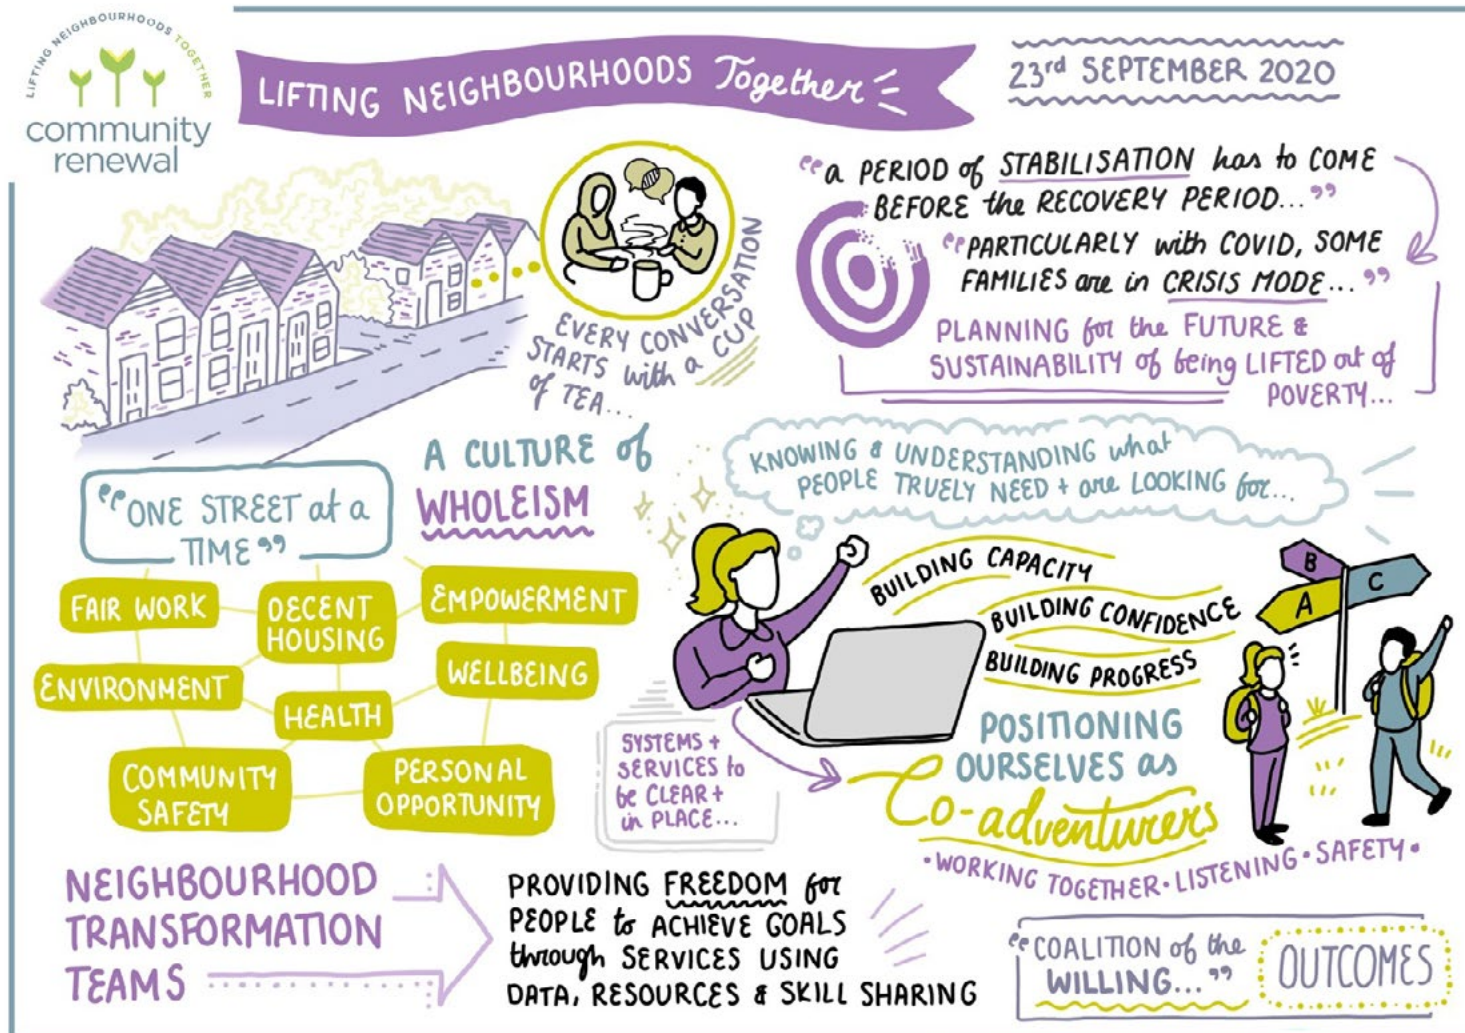 LIFTING NEIGHBOURHOODS TOGETHER
community
renewal
LIFTING NEIGHBOURHOODS Together
23rd SEPTEMBER 2020
"a PERIOD of STABILISATION has to COME
BEFORE the RECOVERY PERIOD..."
"PARTICULARLY with COVID, SOME
FAMILIES are in CRISIS MODE..."
PLANNING for the FUTURE &
SUSTAINABILITY of being LIFTED out of
POVERTY...
EVERY CONVERSATION
STARTS with a CUP
of TEA...
A CULTURE of
WHOLEISM
"ONE STREET at a
TIME"
FAIR WORK
DECENT
HOUSING
EMPOWERMENT
ENVIRONMENT
HEALTH
WELLBEING
COMMUNITY
SAFETY
PERSONAL
OPPORTUNITY
KNOWING & UNDERSTANDING what
PEOPLE TRUELY NEED + are LOOKING for...
BUILDING CAPACITY
BUILDING CONFIDENCE
BUILDING PROGRESS
B
A
C
SYSTEMS +
SERVICES to
be CLEAR +
in PLACE...
POSITIONING
OURSELVES as
Co-adventurers
• WORKING TOGETHER • LISTENING • SAFETY •
NEIGHBOURHOOD
TRANSFORMATION
TEAMS
PROVIDING FREEDOM for
PEOPLE to ACHIEVE GOALS
through SERVICES USING
DATA, RESOURCES & SKILL SHARING
"COALITION of the
WILLING..."
OUTCOMES